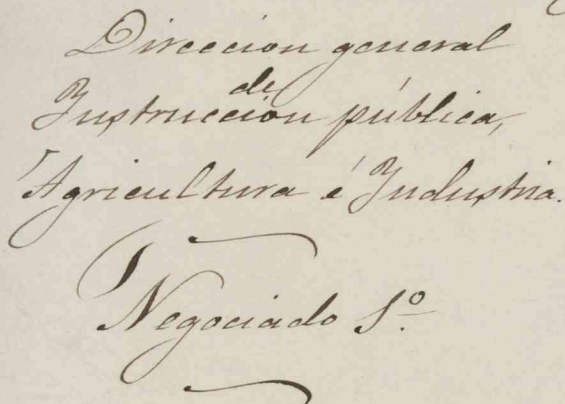 Direccion general
de
Instrucción pública,
Agricultura é Industria.
Negociado 1º